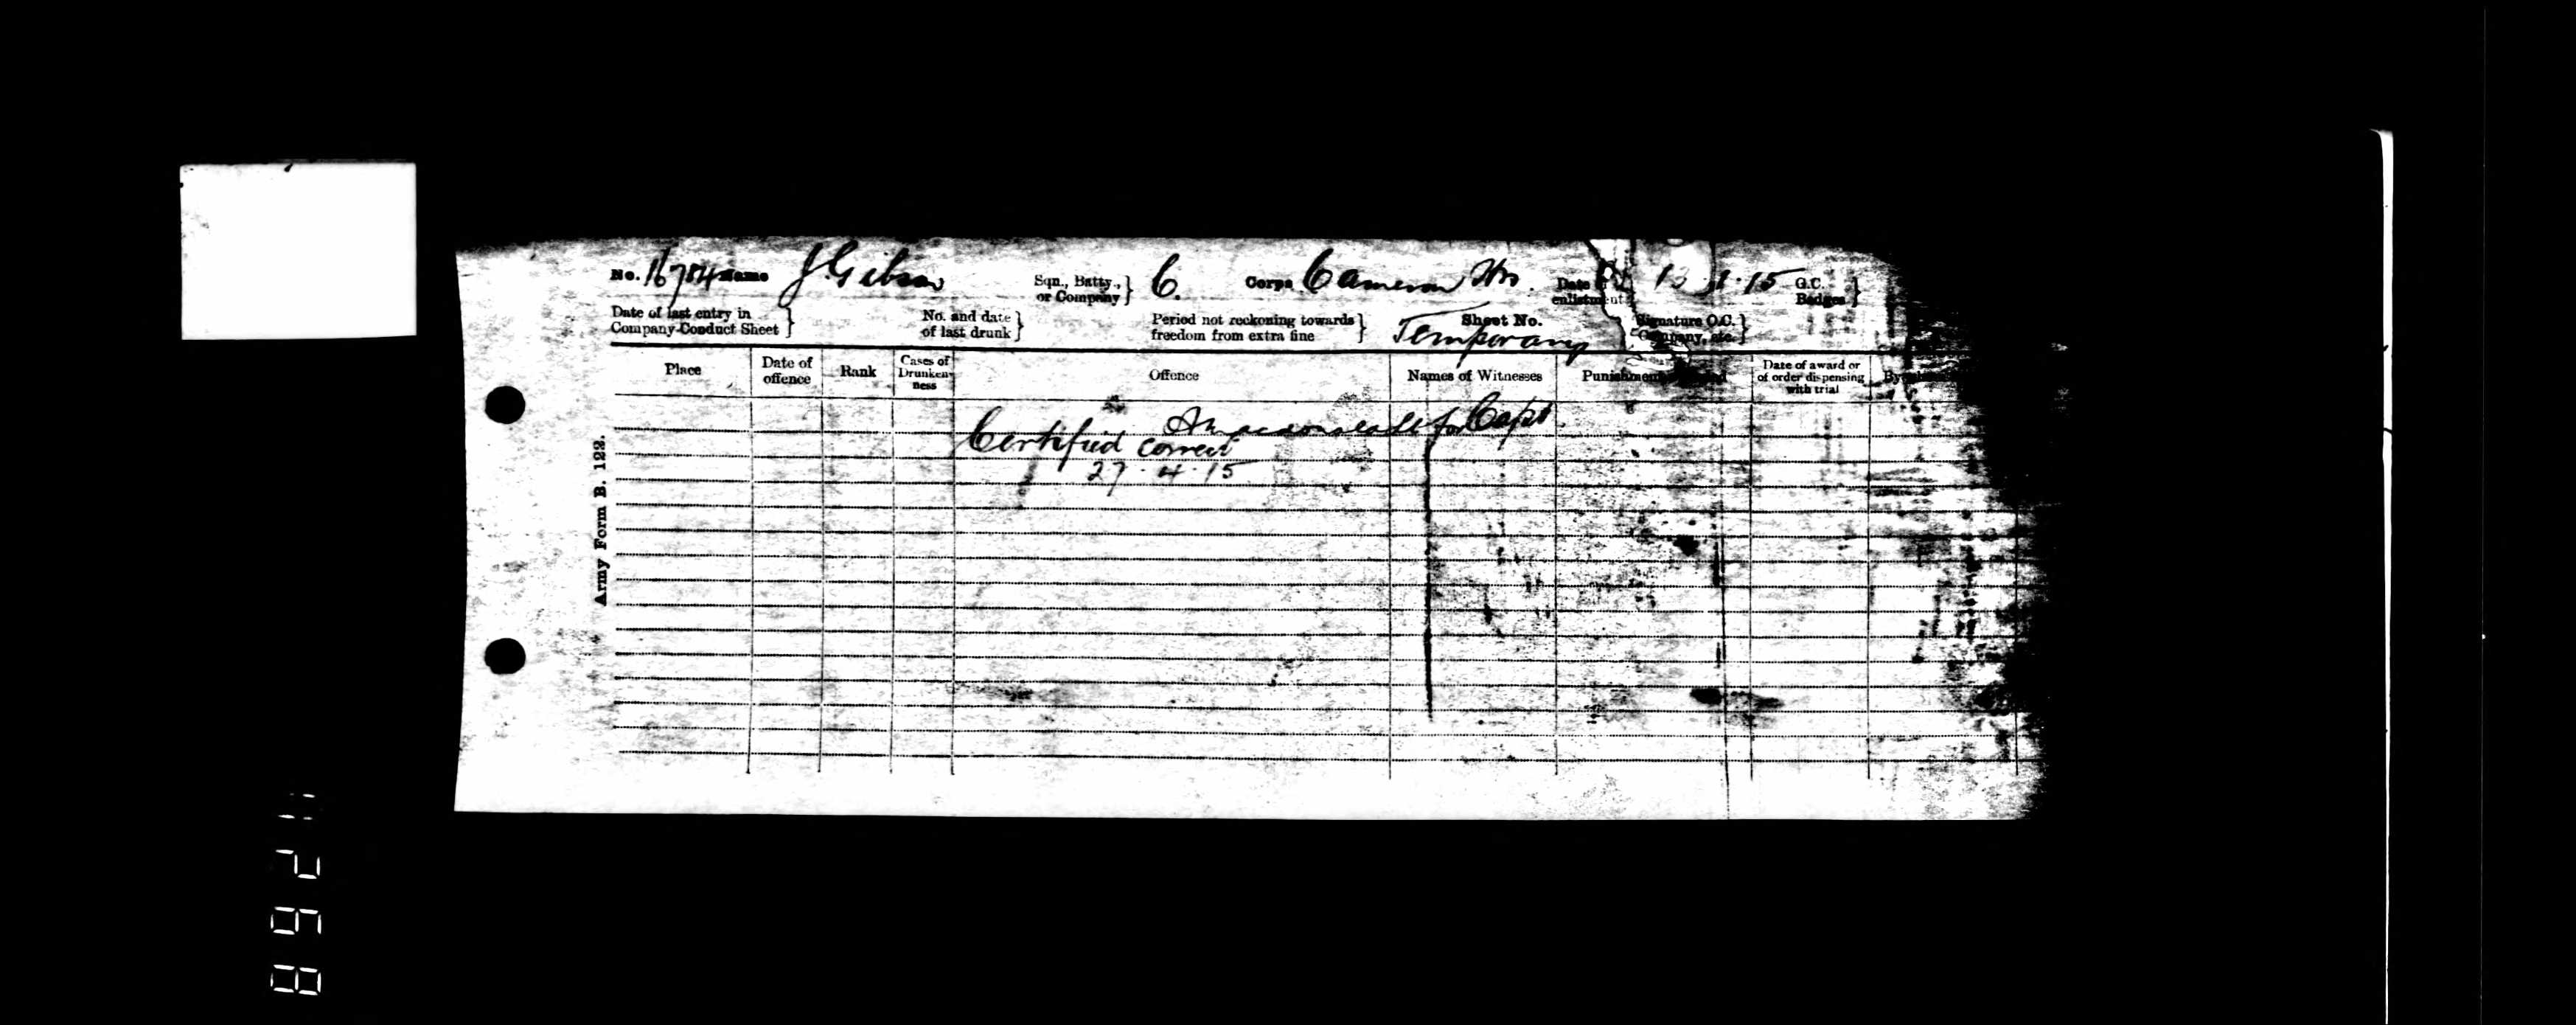 No. 16784 Name J Gibson Sqn., Batty., or Company } C. Corps Cameron Hrs. Date of enlistment 15 G.C. Badges }
Date of last entry in Company Conduct Sheet } No. and date of last drunk } Period not reckoning towards freedom from extra fine } Sheet No. Temporary Signature O.C. Company, etc. }
Place Date of offence Rank Cases of Drunkenness Offence Names of Witnesses Punishment Date of award or of order dispensing with trial By
for Capt
Certified correct
27.4.15
Army Form B. 122.